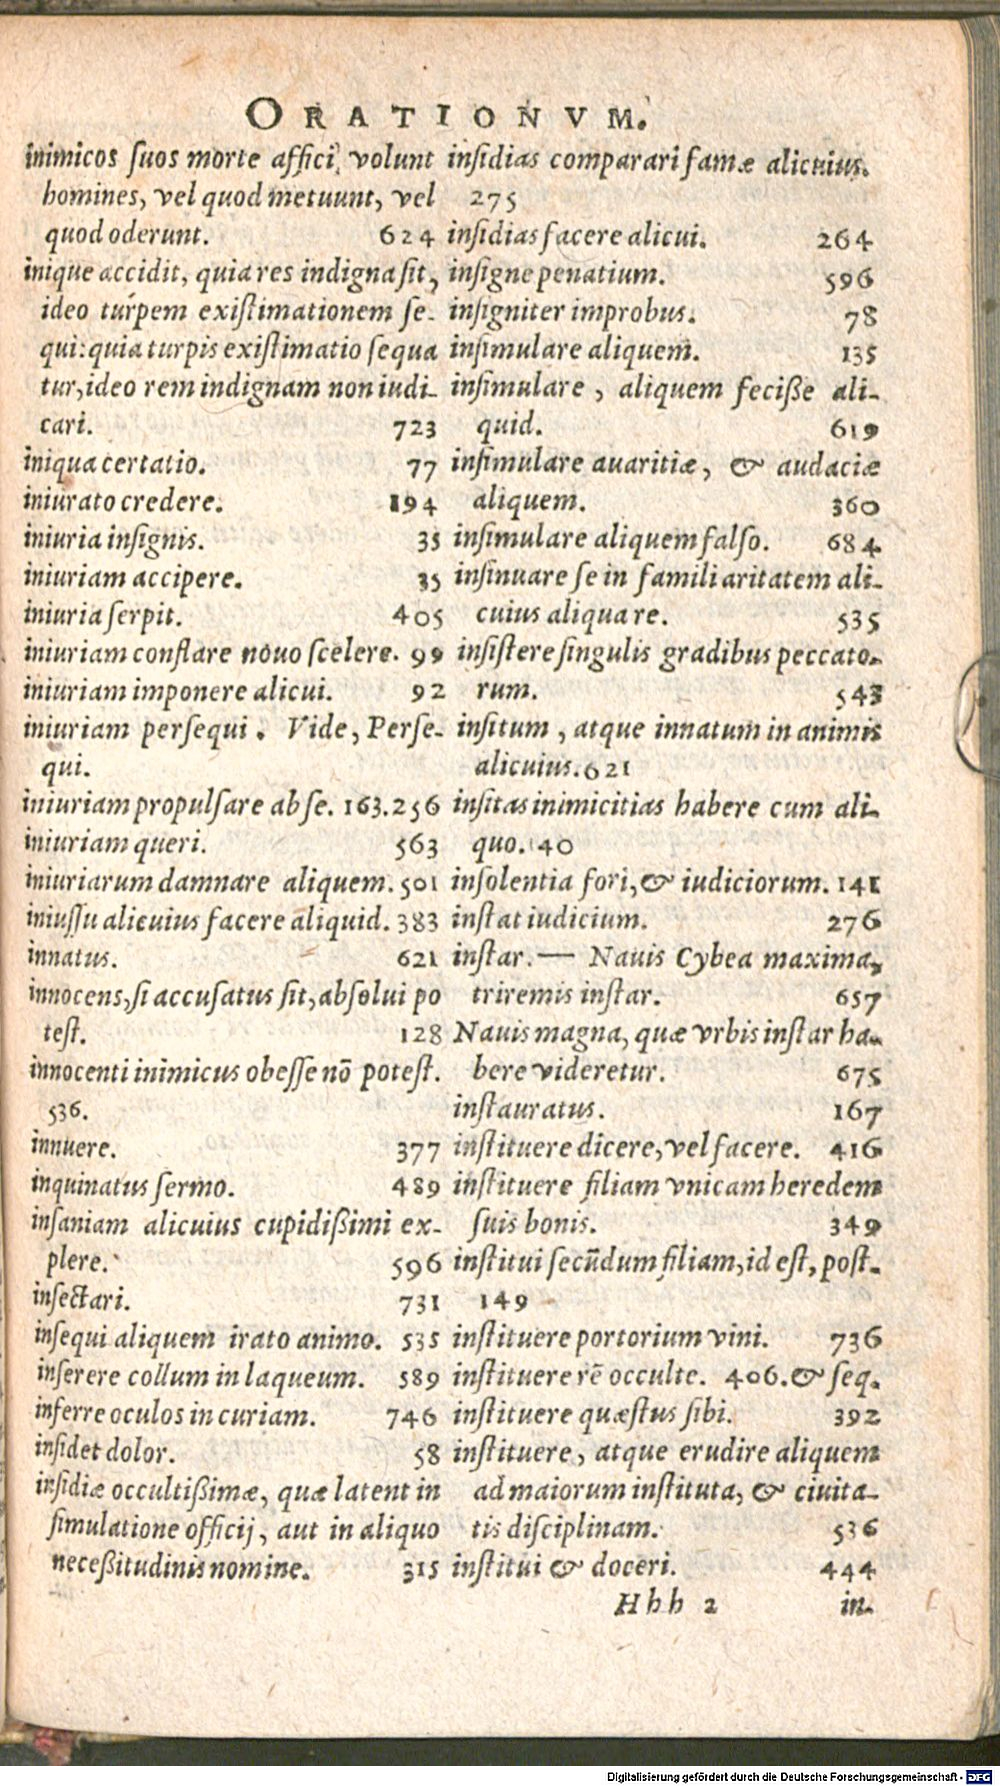 ORATIONVM.
inimicos suos morte affici, volunt
homines, vel quod metuunt, vel
quod oderunt. 624
inique accidit, quia res indigna sit,
ideo turpem existimationem se-
qui: quia turpis existimatio sequa
tur, ideo rem indignam non iudi-
cari. 723
iniqua certatio. 77
iniurato credere. 194
iniuria insignis. 35
iniuriam accipere. 35
iniuria serpit. 405
iniuriam conflare novo scelere. 99
iniuriam imponere alicui. 92
iniuriam persequi. Vide, Perse-
qui.
iniuriam propulsare ab se. 163.256
iniuriam queri. 563
iniuriarum damnare aliquem. 501
iniussu alicuius facere aliquid. 383
innatus. 621
innocens, si accusatus sit, absolui po
test. 128
innocenti inimicus obesse nõ potest.
536.
innuere. 377
inquinatus sermo. 489
insaniam alicuius cupidißimi ex-
plere. 596
insectari. 731
insequi aliquem irato animo. 535
inserere collum in laqueum. 589
inferre oculos in curiam. 746
insidet dolor. 58
insidiæ occultißimæ, quæ latent in
simulatione officij, aut in aliquo
neceßitudinis nomine. 315
insidias comparari famæ alicuius.
275
insidias facere alicui. 264
insigne penatium. 596
insigniter improbus. 78
insimulare aliquem. 135
insimulare, aliquem feciße ali-
quid. 619
insimulare auaritiæ, & audaciæ
aliquem. 360
insimulare aliquem falso. 684
insinuare se in familiaritatem ali-
cuius aliqua re. 535
insistere singulis gradibus peccato-
rum. 543
insitum, atque innatum in animis
alicuius. 621
insitas inimicitias habere cum ali-
quo. 40
insolentia fori, & iudiciorum. 141
instat iudicium. 276
instar. — Nauis Cybea maxima,
triremis instar. 657
Nauis magna, quæ vrbis instar ha-
bere videretur. 675
instauratus. 167
instituere dicere, vel facere. 416
instituere filiam vnicam heredem
suis bonis. 349
institui secũdum filiam, id est, post.
149
instituere portorium vini. 736
instituere rẽ occulte. 406. & seq.
instituere quæstus sibi. 392
instituere, atque erudire aliquem
ad maiorum instituta, & ciuita-
tis disciplinam. 536
institui & doceri. 444
Hhh 2 in-
Digitalisierung gefördert durch die Deutsche Forschungsgemeinschaft - DFG